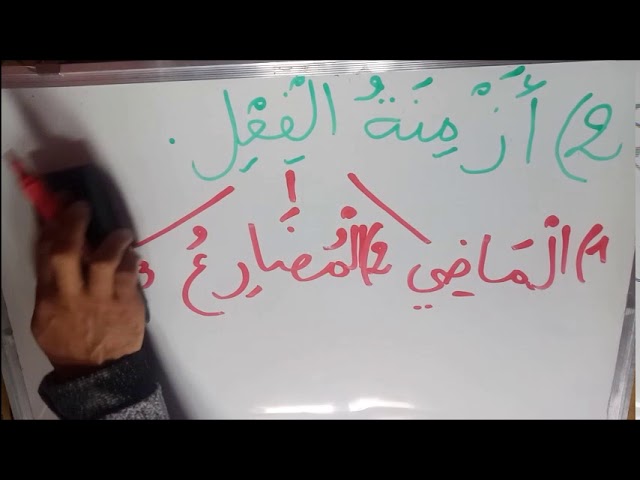 2) أَزْمِنَةُ الْفِعْلِ.
1) الْمَاضِي 2) الْمُضَارِعُ 3